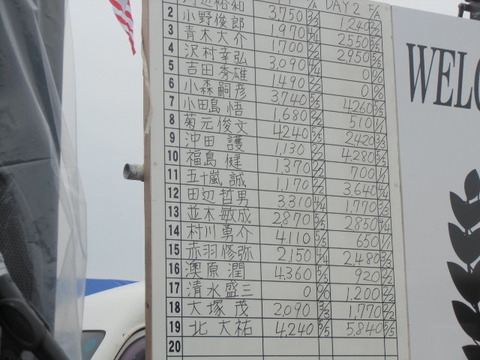 DAY 2
2 小野俊郎 3,750 1,240
3 青木大介 1970 2550
4 沢村幸弘 1,700 2950
5 吉田秀雄 3,090 0
6 小森嗣彦 1490 0
7 小田島悟 3,740 4260
8 菊元俊文 1,680 510
9 沖田護 4240 2420
10 福島健 1,130 4,280
11 五十嵐誠 1,370 700
12 田辺哲男 1,170 3,640
13 並木敏成 3,310 1,770
14 村川勇介 2870 2850
15 赤羽修弥 4,110 650
16 澳原潤 2,150 2,480
17 清水盛三 4,360 920
18 大塚茂 0 1,200
19 北大祐 2,090 1,770
20 4,240 5,840
WELC